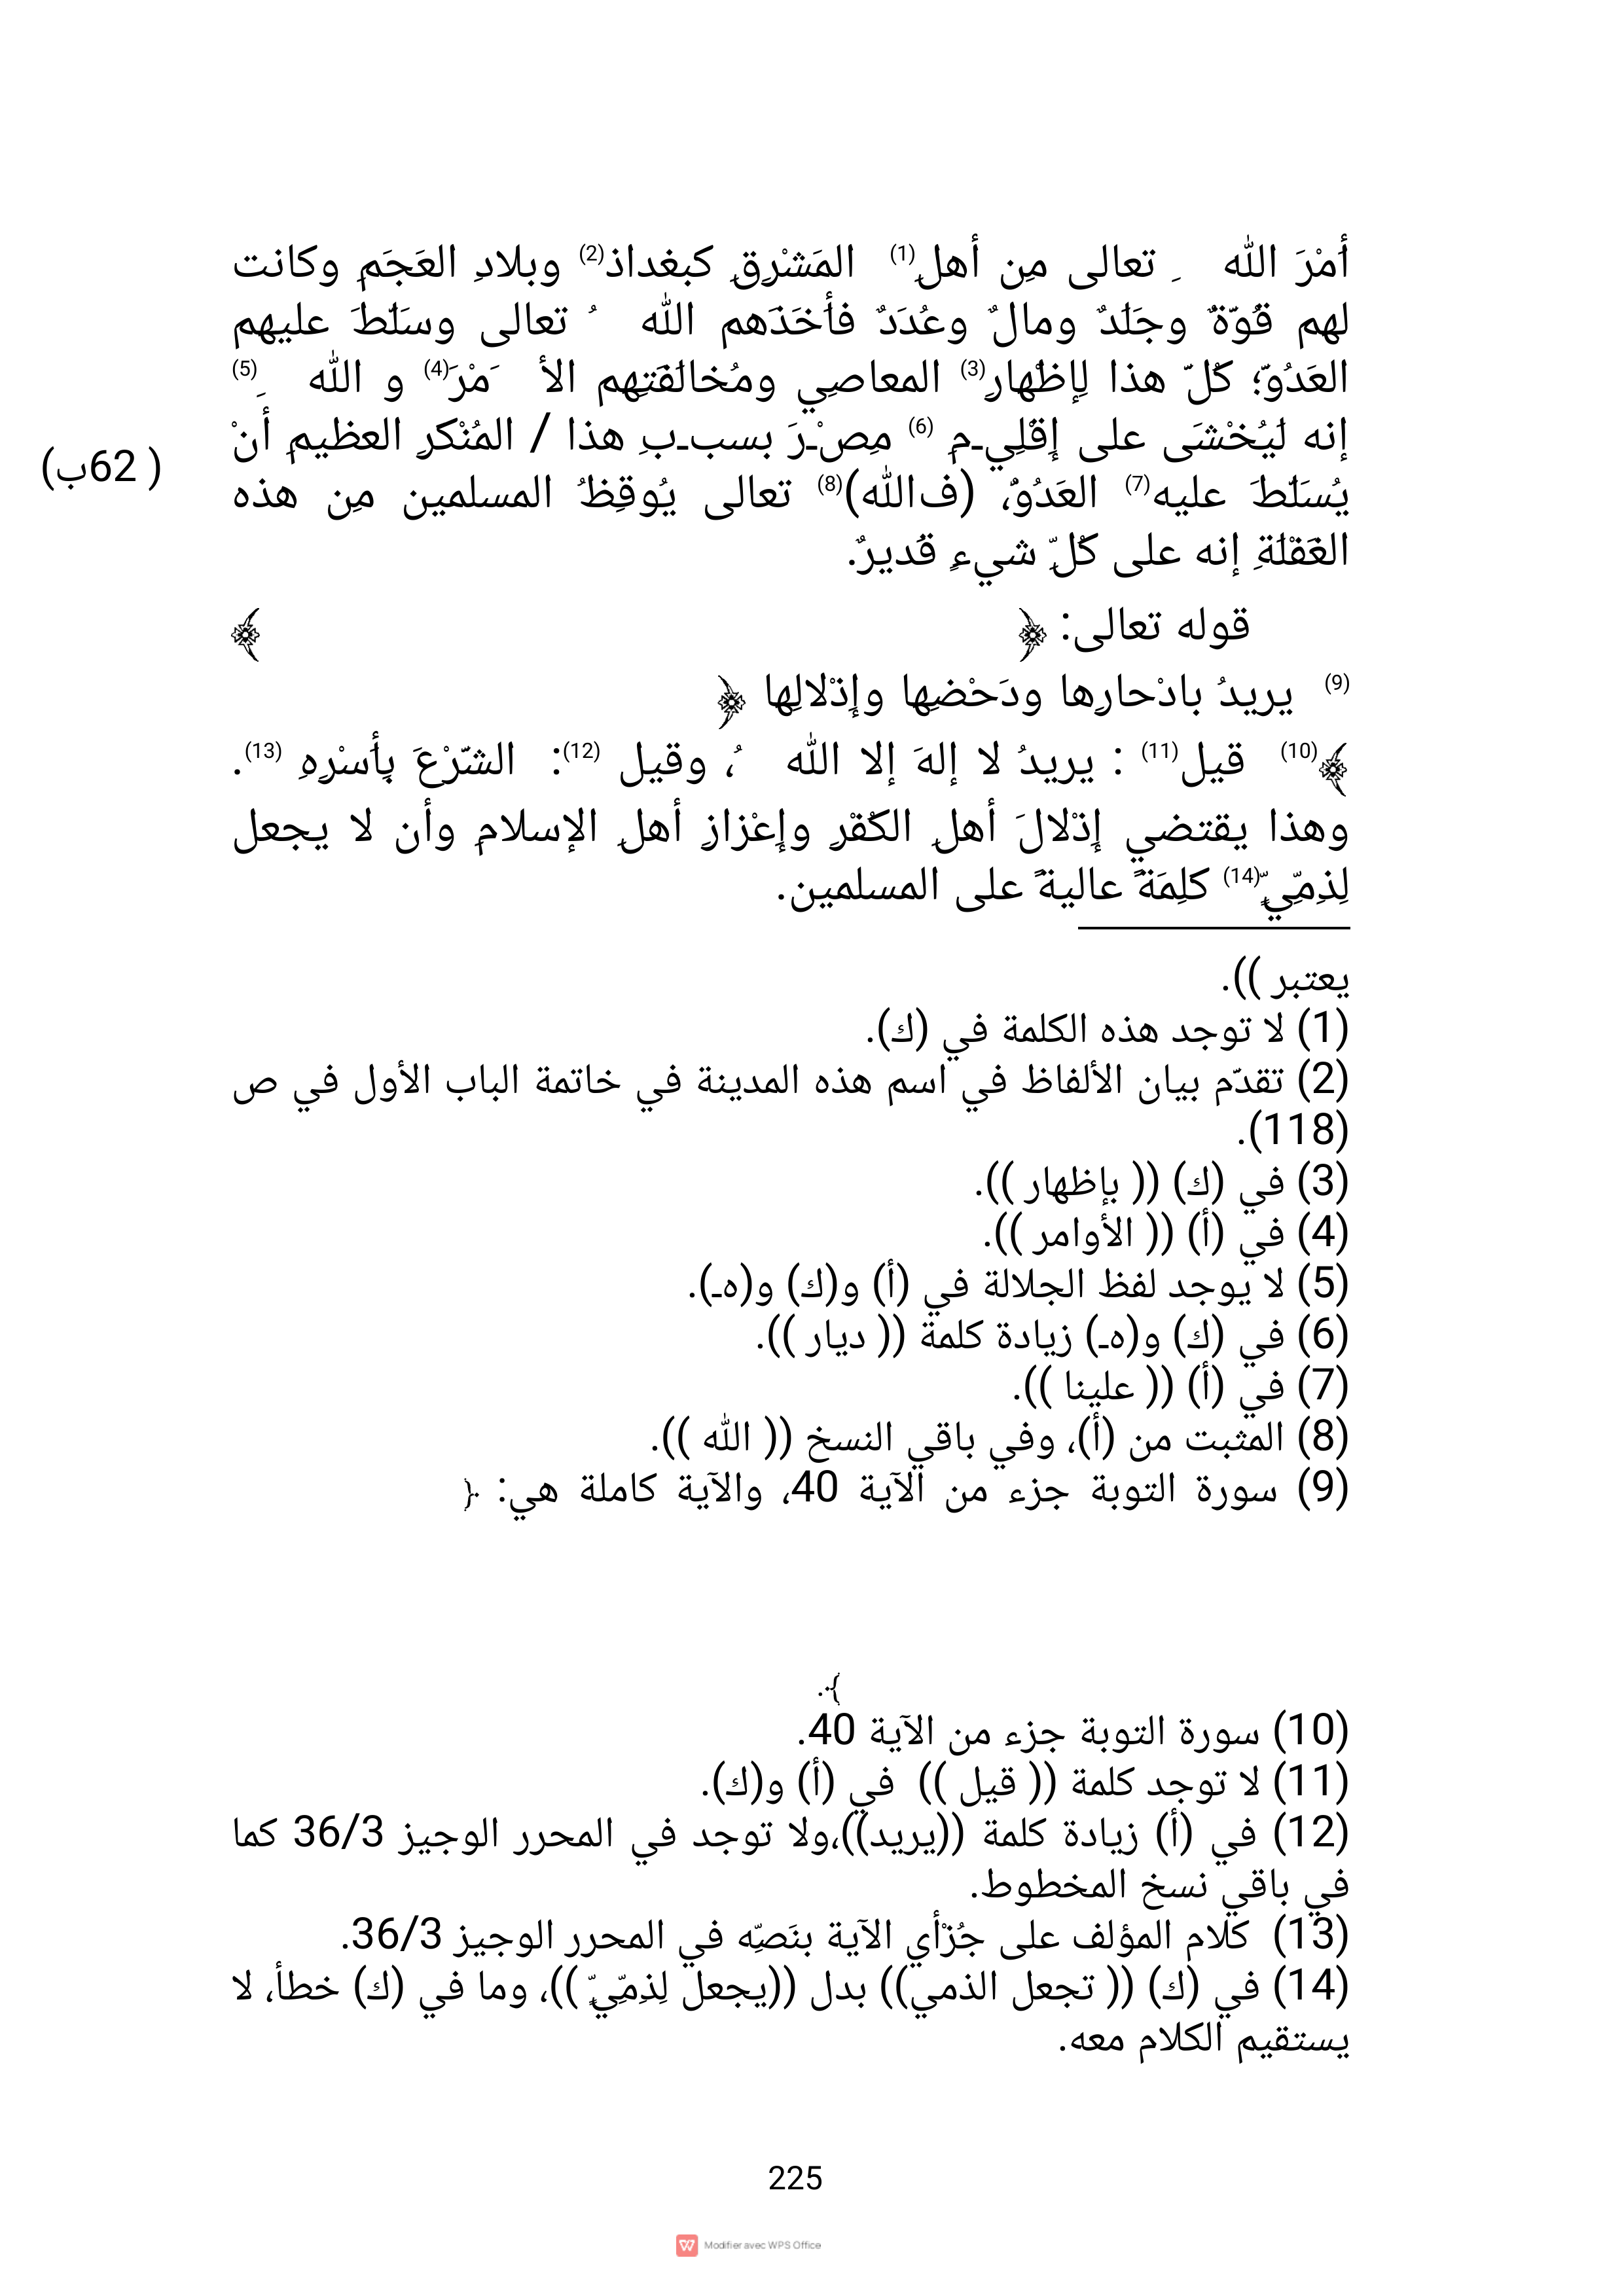 أَمْرَ الله ِ تعالى مِن أهلِ(1) المَشْرِقِ كبغداذ(2) وبلادِ العَجَمِ وكانت
لهم قُوّةٌ وجَلَدٌ ومالٌ وعُدَدٌ فأَخَذَهم الله ُ تعالى وسَلّطَ عليهم
العَدُوّ؛ كُلّ هذا لِإظْهارِ(3) المعاصِي ومُخالَفَتِهم الأ َمْرَ(4) و الله ِ(5)
إنه لَيُخْشَى على إقْلِيـم (6) مِصْـرَ بسبـبِ هذا / المُنْكرِ العظيمِ أَنْ
( 62ب)
يُسَلّطَ عليه(7) العَدُوّ، (فالله)(8) تعالى يُوقِظُ المسلمين مِن هذه
الغَفْلَةِ إنه على كُلِّ شيءٍ قَديرٌ.
قوله تعالى: ﴿ ﴾
(9) يريدُ بادْحارِها ودَحْضِها وإِذْلالِها ﴿
﴾(10) قيل(11) : يريدُ لا إلهَ إلا الله ُ، وقيل (12): الشّرْعَ بِأَسْرِهِ (13).
وهذا يقتضي إِذْلالَ أهلِ الكُفْرِ وإِعْزازِ أهلِ الإسلامِ وأن لا يجعل
لِذِمِّيٍّ(14) كلِمَةً عاليةً على المسلمين.
يعتبر )).
(1) لا توجد هذه الكلمة في (ك).
(2) تقدّم بيان الألفاظ في اسم هذه المدينة في خاتمة الباب الأول في ص
(118).
(3) في (ك) (( بإظهار )).
(4) في (أ) (( الأوامر )).
(5) لا يوجد لفظ الجلالة في (أ) و(ك) و(هـ).
(6) في (ك) و(هـ) زيادة كلمة (( ديار )).
(7) في (أ) (( علينا )).
(8) المثبت من (أ)، وفي باقي النسخ (( الله )).
(9) سورة التوبة جزء من الآية 40، والآية كاملة هي: {
}.
(10) سورة التوبة جزء من الآية 40.
(11) لا توجد كلمة (( قيل )) في (أ) و(ك).
(12) في (أ) زيادة كلمة ((يريد))،ولا توجد في المحرر الوجيز 36/3 كما
في باقي نسخ المخطوط.
(13) كلام المؤلف على جُزْأي الآية بنَصِّه في المحرر الوجيز 36/3.
(14) في (ك) (( تجعل الذمي)) بدل ((يجعل لِذِمِّيٍّ ))، وما في (ك) خطأ، لا
يستقيم الكلام معه.
225
Modifier avec WPS Office